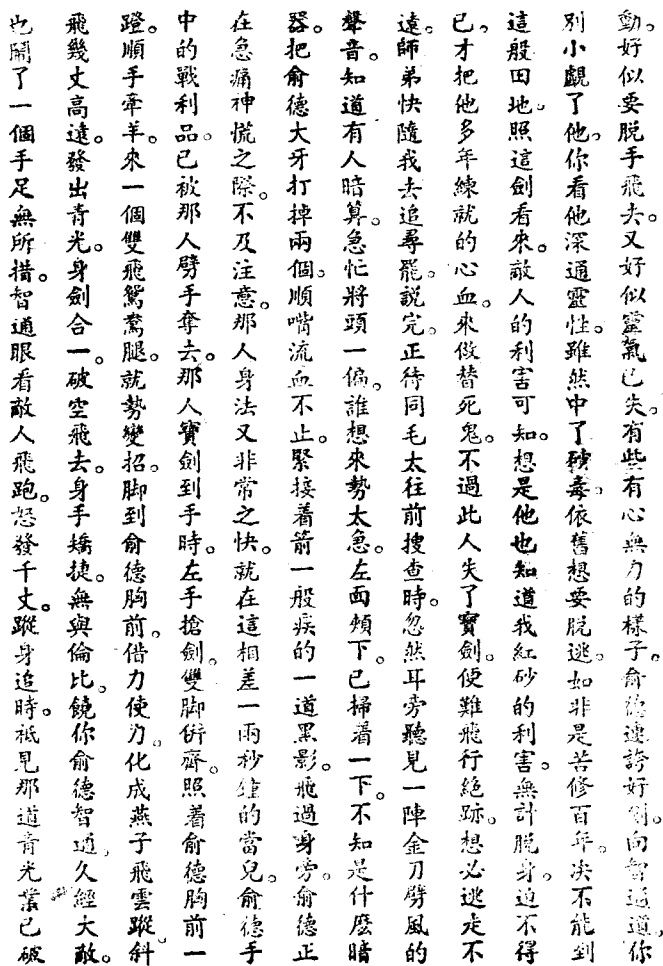 動。好似要脫手飛去。又好似靈氣已失。有些有心無力的樣子。俞德連誇好劍。向智通道。你
別小覷了他。你看他深通靈性。雖然中了穢毒。依舊想要脫逃。如非是苦修百年。决不能到
這般田地。照這劍看來。敵人的利害可知。想是他也知道我紅砂的利害。無計脫身。迫不得
已。才把他多年練就的心血。來做替死鬼。不過此人失了寶劍。便難飛行絕跡。想必逃走不
遠。師弟快隨我去追尋罷。說完。正待同毛太往前搜查時。忽然耳旁聽見一陣金刀劈風的
聲音。知道有人暗算。急忙將頭一偏。誰想來勢太急。左面頰下。已掃着一下。不知是什麼暗
器。把俞德大牙打掉兩個。順嘴流血不止。緊接着箭一般疾的一道黑影。飛過身旁。俞德正
在急痛神慌之際。不及注意。那人身法又非常之快。就在這相差一兩秒鐘的當兒。俞德手
中的戰利品。已被那人劈手奪去。那人寶劍到手時。左手搶劍。雙脚併齊。照着俞德胸前一
蹬。順手牽羊。來一個雙飛鴛鴦腿。就勢變招。脚到俞德胸前。借力使力。化成燕子飛雲蹤。斜
飛幾丈高遠。發出青光。身劍合一。破空飛去。身手矯捷。無與倫比。饒你俞德智通。久經大敵。
也鬧了一個手足無所措。智通眼看敵人飛跑。怒發千丈。蹤身追時。祇見那道青光業已破